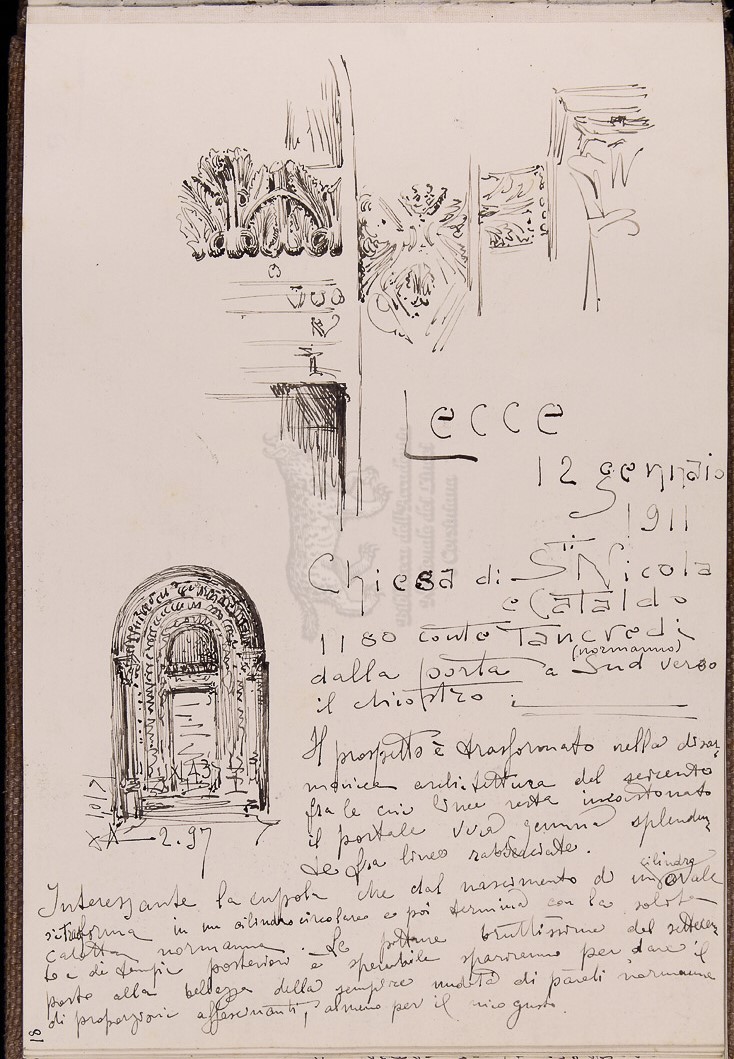 Lecce
12 gennaio
1911
Chiesa di Sti Nicola
e Cataldo
1180 conte Tancredi
(normanno)
dalla porta a Sud verso
il chiostro :
Il prospetto è trasformato nella disar-
monica architettura del seicento
fra le cui linee resta incastonato
il portale vera gemma splenden-
te fra linee
Interessante la cupola che dal nascimento di un ovale
cilindro
si trasforma in un cilindro circolare e poi termina con la solita
calotta normanna. Le pitture bruttissime del settecen-
to e di tempi posteriori è sperabile spariranno per dare il
posto alla bellezza della sempre nudità di pareti normanne
di proporzioni affascinanti, almeno per il mio gusto.
2.97
81